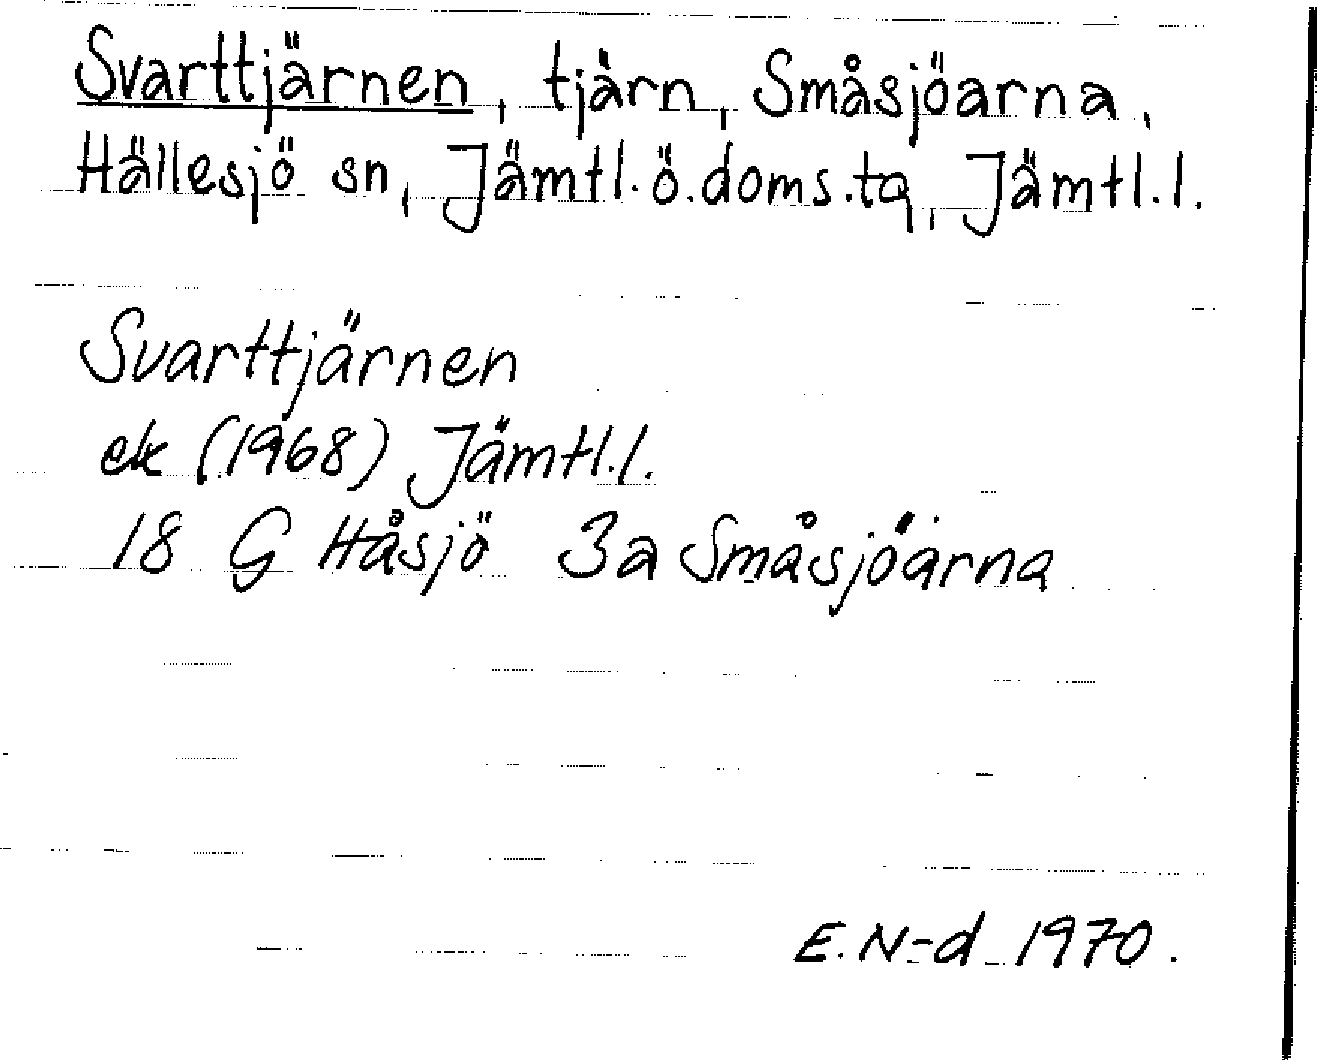 Svarttjärnen, tjärn, Småsjöarna,
Hällesjö sn, Jämtl. ö. doms. tg, Jämtl. l.
Svarttjärnen
ek (1968) Jämtl. l.
18 G Håsjö 3a Småsjöarna
E. N-d 1970.